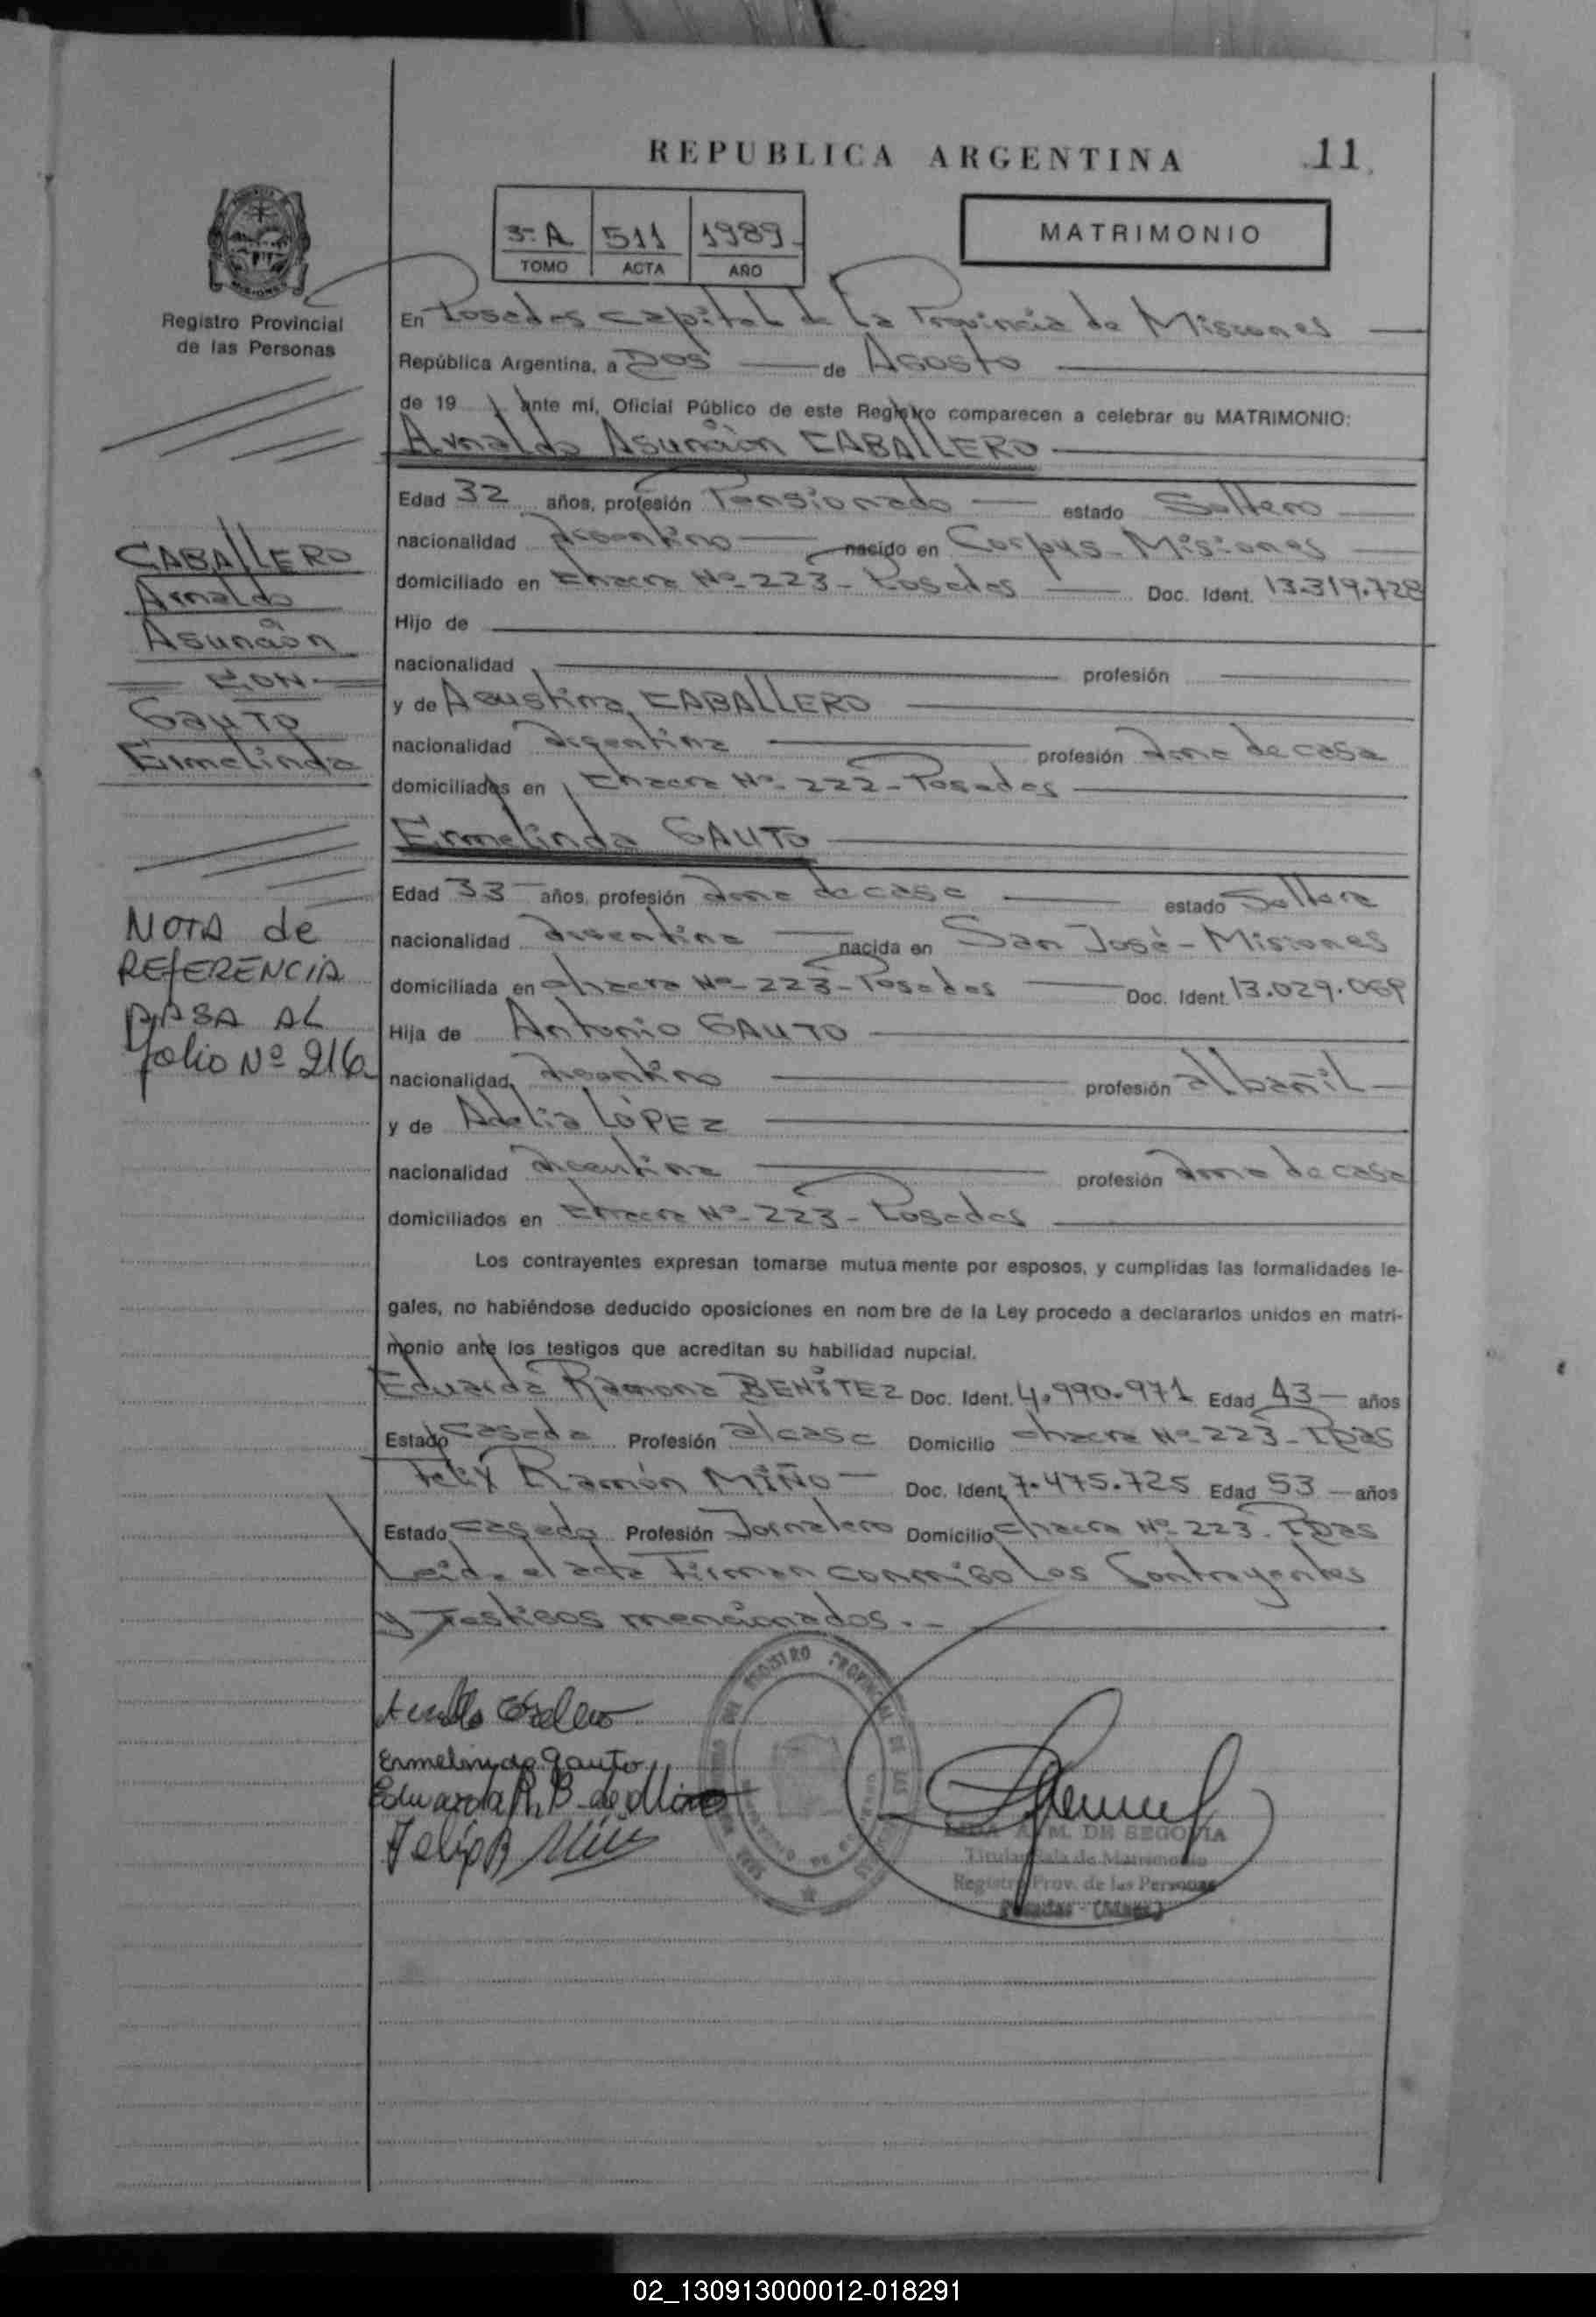 REPUBLICA ARGENTINA
11
3º A 511 1989
TOMO ACTA AÑO
MATRIMONIO
Registro Provincial
de las Personas
En Posadas capital de la Provincia de Misiones
República Argentina, a Dos de Agosto
de 19 ante mí, Oficial Público de este Registro comparecen a celebrar su MATRIMONIO:
Arnaldo Asunción CABALLERO
Edad 32 años, profesión Pensionado estado Soltero
nacionalidad Argentino nacido en Corpus - Misiones
domiciliado en Chacra Nº 223 - Posadas Doc. Ident. 13.319.728
Hijo de
nacionalidad profesión
y de Agustina CABALLERO
nacionalidad Argentina profesión ama de casa
domiciliados en Chacra Nº 222 - Posadas
Ermelinda GAUTO
Edad 33 años, profesión ama de casa estado Soltera
nacionalidad Argentina nacida en San José - Misiones
domiciliada en chacra Nº 223 - Posadas Doc. Ident. 13.029.069
Hija de Antonio GAUTO
nacionalidad Argentino profesión albañil
y de Adelia LÓPEZ
nacionalidad Argentina profesión ama de casa
domiciliados en Chacra Nº 223 - Posadas
Los contrayentes expresan tomarse mutua mente por esposos, y cumplidas las formalidades le-
gales, no habiéndose deducido oposiciones en nom bre de la Ley procedo a declararlos unidos en matri-
monio ante los testigos que acreditan su habilidad nupcial.
Eduarda Ramona BENÍTEZ Doc. Ident. 4.990.971 Edad 43 años
Estado Casada Profesión a/casa Domicilio chacra Nº 223 - Pdas
Felix Ramón MIÑO Doc. Ident. 7.475.725 Edad 53 años
Estado Casado Profesión Jornalero Domicilio chacra Nº 223 - Pdas
Leida el acta Firman conmigo Los Contrayentes
y Testigos mencionados.-
CABALLERO
Arnaldo
Asunción
CON
GAUTO
Ermelinda
NOTA de
REFERENCIA
PASA AL
folio Nº 216
Ermelinda gauto
Eduarda R. B. de Miño
Felix R Miño
REGISTRO PROVINCIAL DE LAS
DE SEGOVIA
Titular Sala de Matrimonio
Registro Prov. de las Personas
Posadas - (Mnes.)
02_130913000012-018291